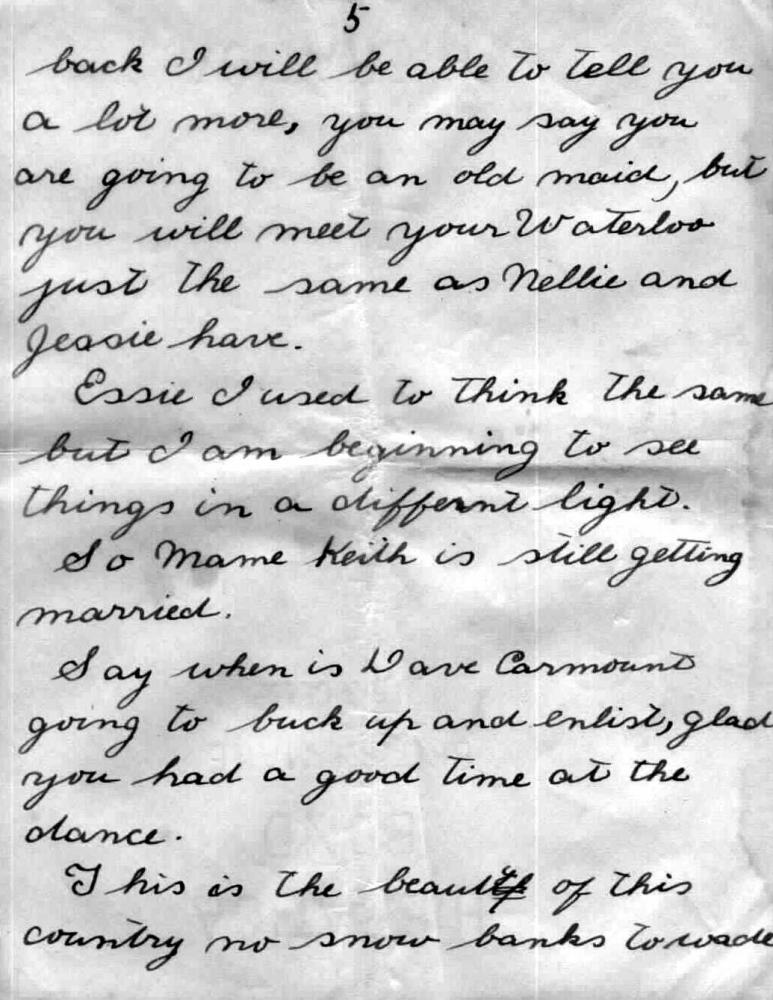 5
back I will be able to tell you
a lot more, you may say you
are going to be an old maid, but
you will meet your Waterloo
just the same as Nellie and
Jessie have.
Essie I used to think the same
but I am beginning to see
things in a differnt light.
So Mame Keith is still getting
married.
Say when is Dave Carmount
going to buck up and enlist, glad
you had a good time at the
dance.
This is the beauty of this
country no snow banks to wade